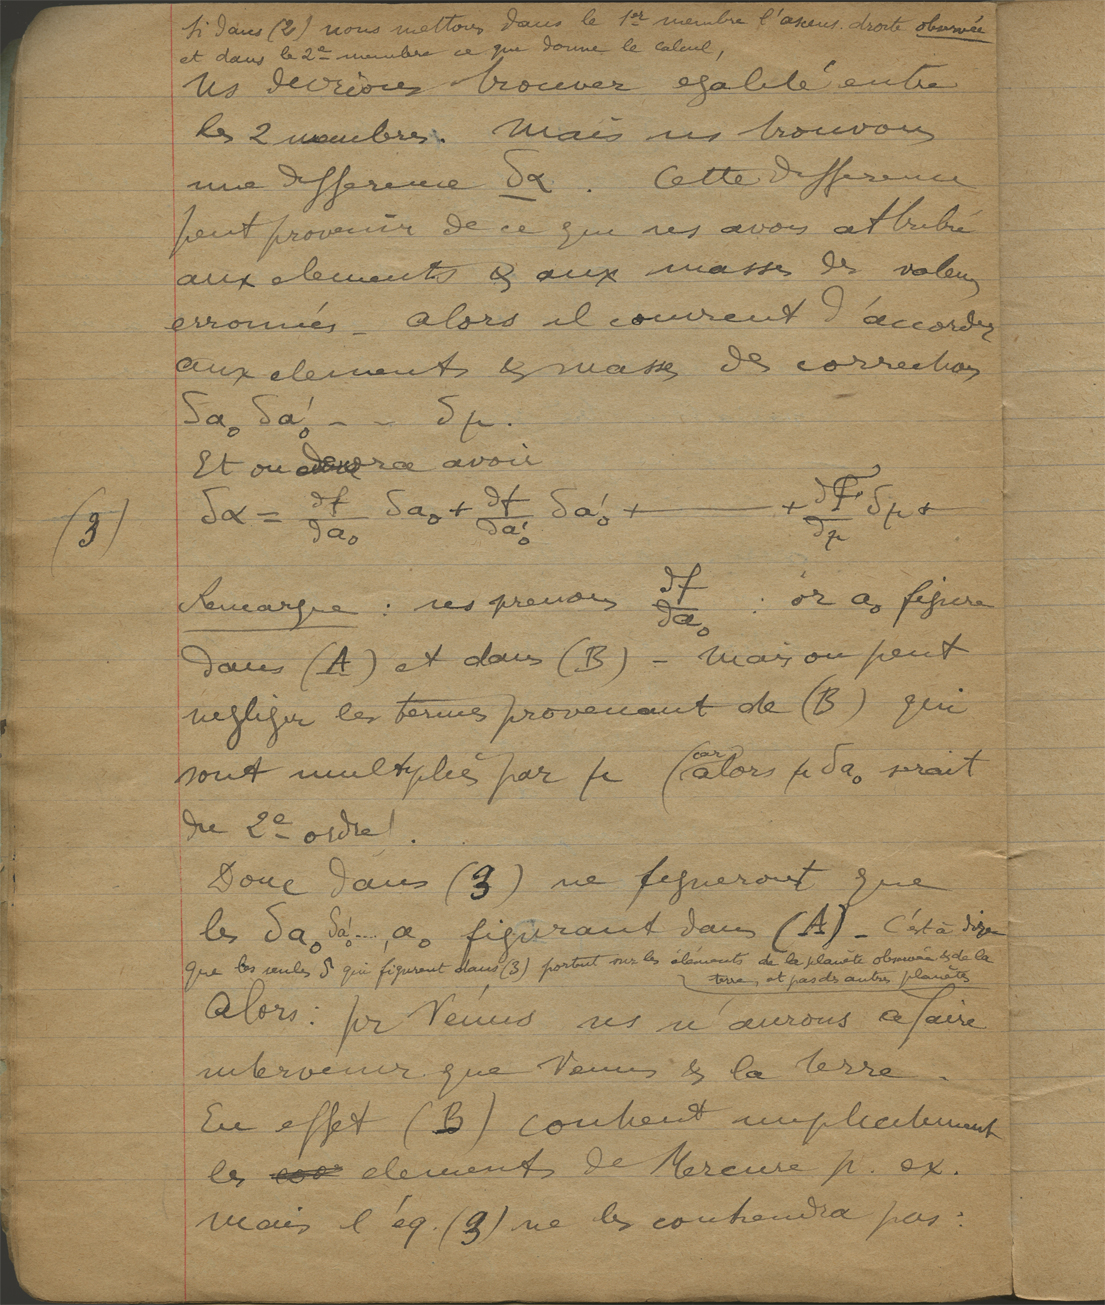 Si dans (2) nous mettons dans le 1er membre l'ascens. droite observée
et dans le 2e membre ce que donne le calcul,
ns devrions trouver égalité entre
les 2 membres. Mais ns trouvons
une difference δα. Cette difference
peut provenir de ce que ns avons attribué
aux elements & aux masses des valeurs
erronnées - alors il convient d'accorder
aux elements & masses des corrections
δa₀ δa'₀ - - δμ.
Et on devra avoir
(3) δα = ∂f/∂a₀ δa₀ + ∂f/∂a'₀ δa'₀ + ——— + ∂F/∂μ δμ +
Remarque : ns prenons ∂f/∂a₀ : or a₀ figure
dans (A) et dans (B) - mais on peut
negliger les termes provenant de (B) qui
sont multipliés par μ (car alors μ δa₀ serait
du 2e ordre!.
Donc dans (3) ne figureront que
les δa₀ δa'₀...., a₀ figurant dans (A) - C'est à dire
que les seules δ qui figurent dans (3) portent sur les éléments de la planète observée & de la
terre, et pas des autres planètes
Alors : pr Vénus ns n'aurons a faire
intervenir que Venus & la terre -
En effet (B) contient implicitement
les elements de Mercure p. ex.
mais l'éq. (3) ne les contiendra pas :